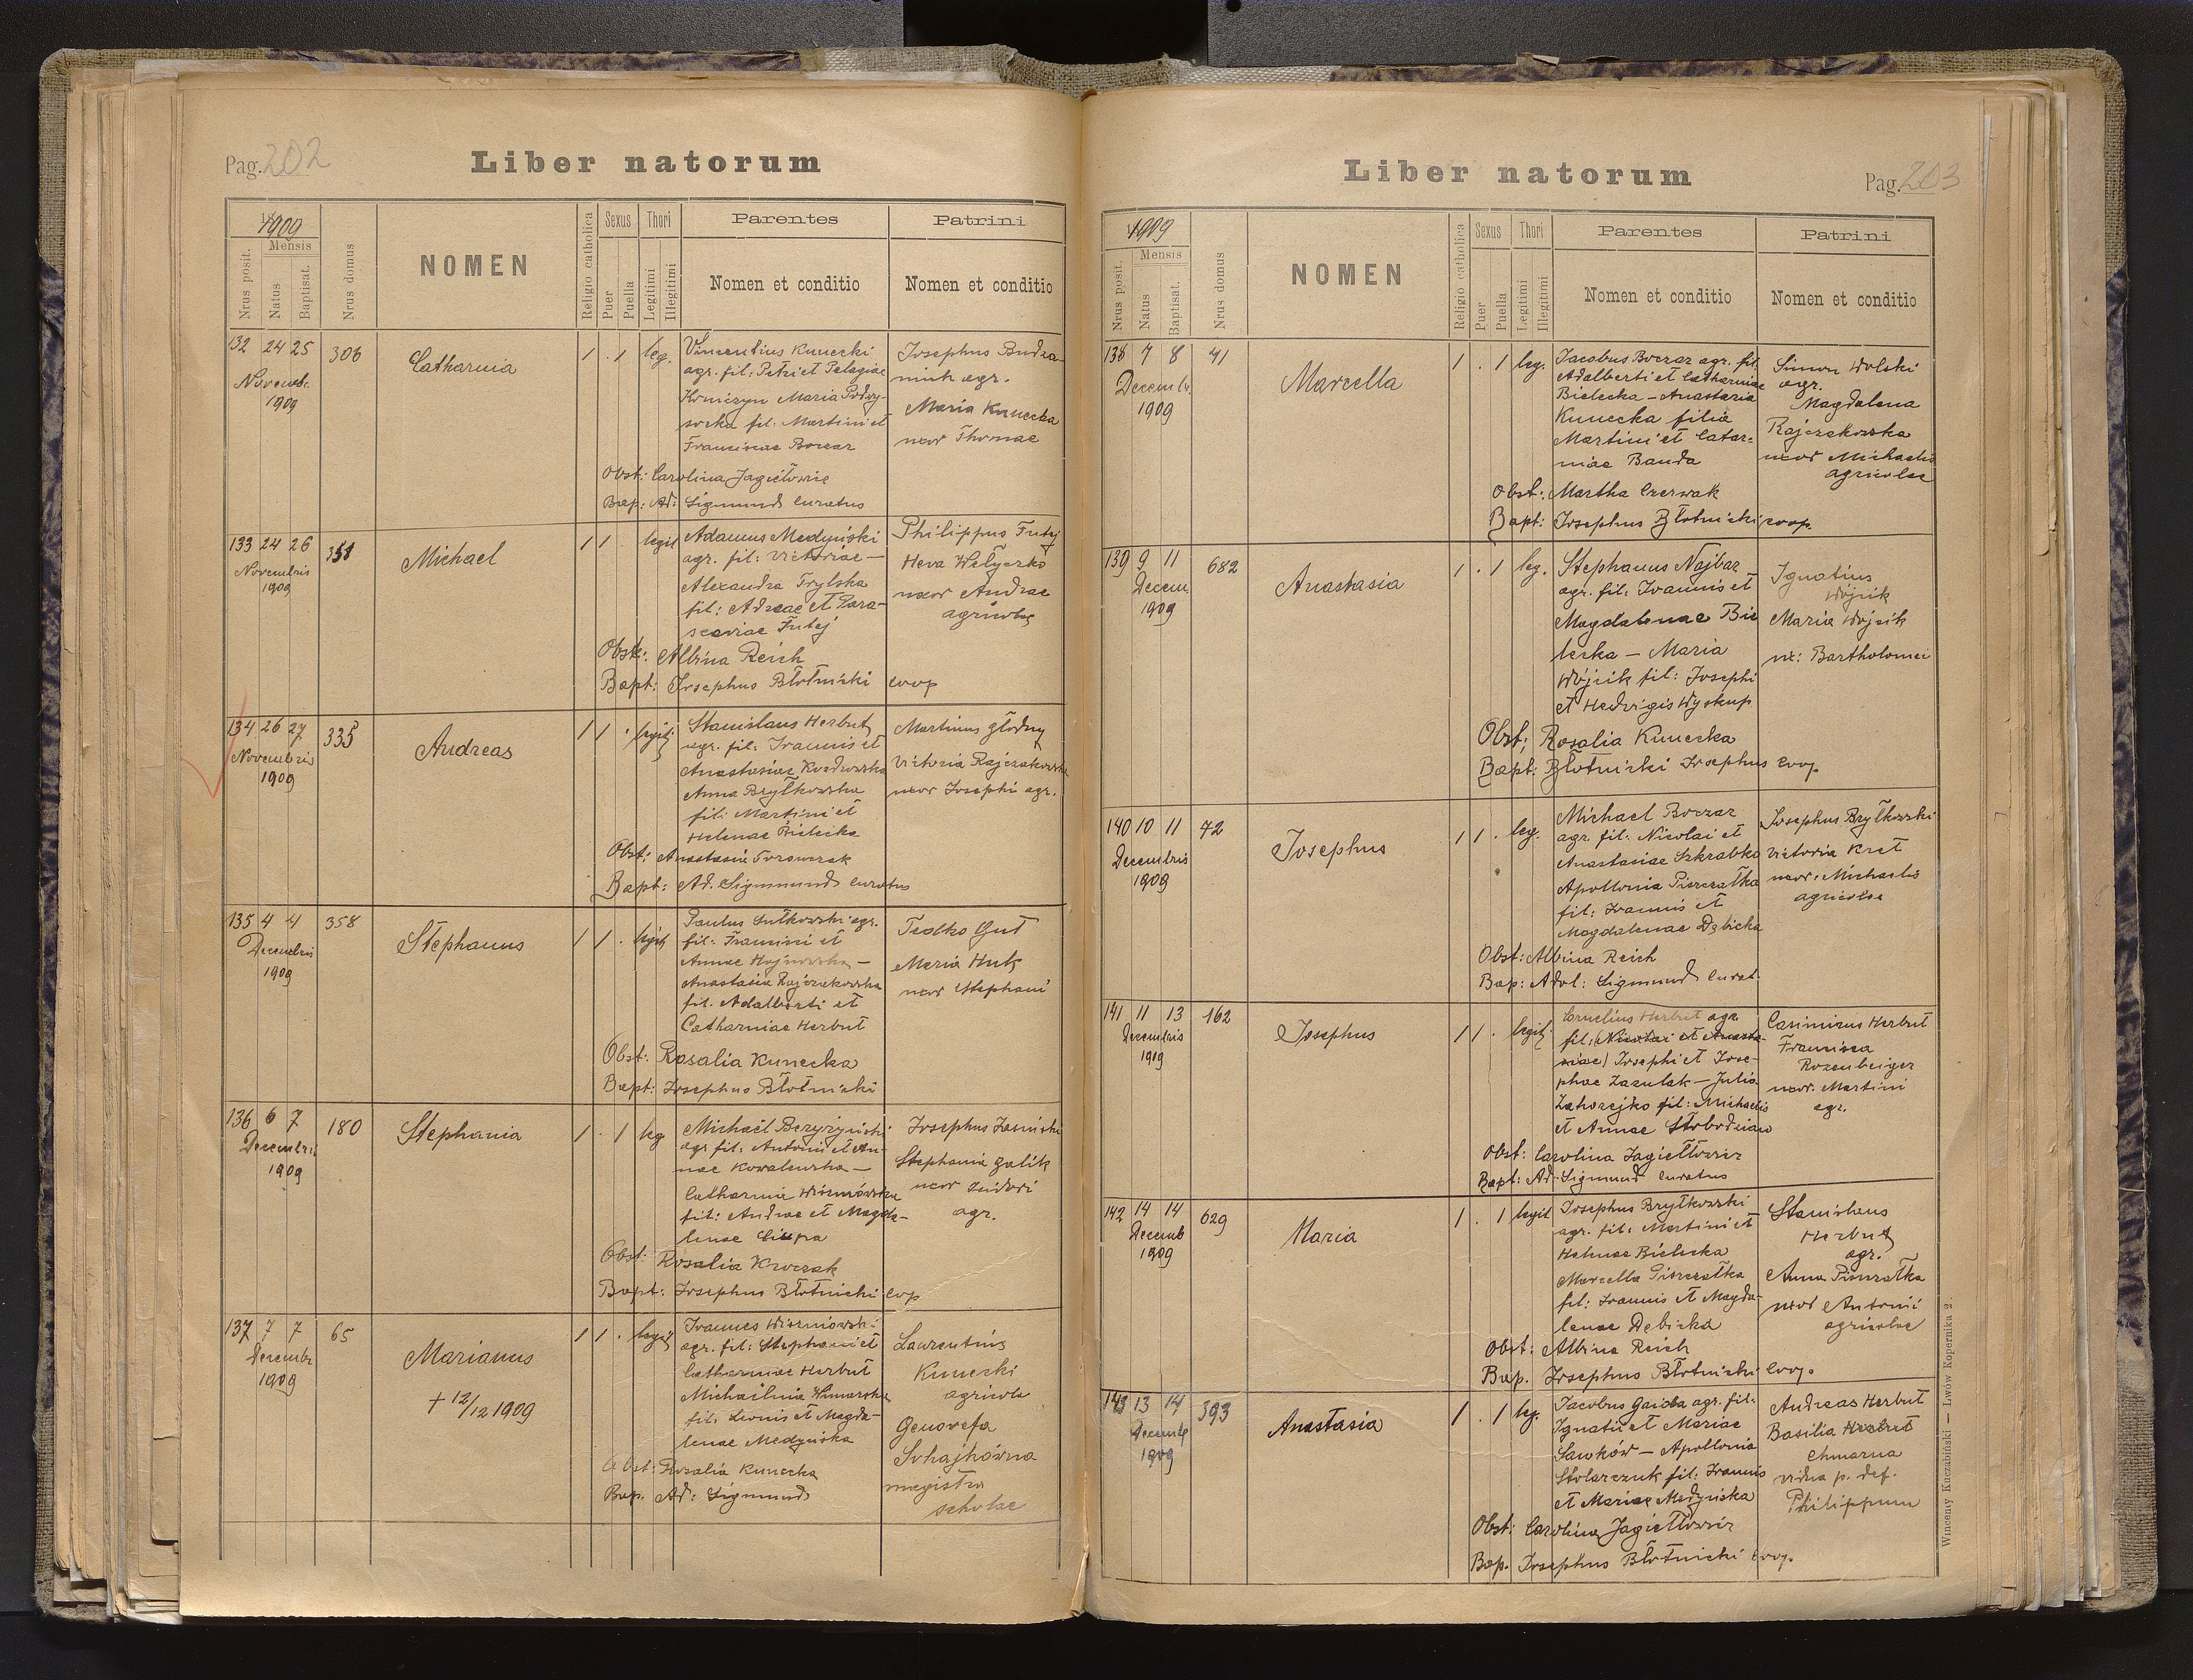 Pag. 202
Liber natorum
1909
Mensis
Nrus posit.
Natus
Baptisat.
Nrus domus
NOMEN
Religio catholica
Sexus
Puer
Puella
Thori
Legitimi
Illegitimi
Parentes
Nomen et conditio
Patrini
Nomen et conditio
132 24 25 306
Novemb.
1909
Catharina
1 . 1 leg.
Vincentius Kunecki
agr. fil: Petri et Pelagiae
Maria Podwy-
socka fil: Martini et
Franciscae Boczar
Obst: Carolina Jagiełłowicz
Bap: Ad: Sigmund Curatus
agr.
Maria Kunecka
uxor Thomae
133 24 26 351
Novembris
1909
Michael
1 1 . legit
Adamus Medyński
agr. fil: Victoriae —
Alexandra Trylska
fil: Adreae et Para-
sceviae Futej
Obst: Albina Reich
Bapt: Josephus Błotnicki coop
Philippus Futej
Heva Wełyczko
uxor Andrae
agricolae
134 26 27 335
Novembris
1909
Andreas
1 1 . legit
Stanislaus Herbut
agr. fil: Ioannis et
Anastasiae
Anna Bryłkowska
fil: Martini et
Helenae Bielecka
Obst: Anastasia
Bapt: Ad. Sigmund Curatus
Martinus Głodny
Victoria Rajczakowska
uxor Josephi agr.
135 4 4 358
Decembris
1909
Stephanus
1 1 . legit
Paulus Sułkowski agr.
fil: et
Annae —
Anastasia Rajczakowska
fil. Adalberti et
Catharniae Herbut
Obst: Rosalia Kunecka
Bapt: Josephus Błotnicki
Fedko Gut
Maria Huk
uxor Stephani
136 6 7 180
Decembris
1909
Stephania
1 . 1 leg
Michael
agr fil: Antoni et An-
nae Kowalewska —
Catharnia Wiśniowska
fil: Andrae et Magda-
lenae
Obst: Rosalia Kroczak
Bapt: Josephus Błotnicki cop
Josephus
Stephania Galik
uxor Isidori
agr.
137 7 7 65
Decembr
1909
Marianus
+ 12/12 1909
1 1 . legit
Ioannes Wiśniowski
agr. fil: Stephani et
Catharniae Herbut
Michaelina
fil: Leonis et Magda-
lenae Medyńska
Obst: Rosalia Kunecka
Bap. Ad: Sigmund
Laurentius
Kunecki
agricola
Genovefa
magistra
scholae
Liber natorum
Pag. 203
1909
Mensis
Nrus posit.
Natus
Baptisat.
Nrus domus
NOMEN
Religio catholica
Sexus
Puer
Puella
Thori
Legitimi
Illegitimi
Parentes
Nomen et conditio
Patrini
Nomen et conditio
138 7 8 41
Decemb.
1909
Marcella
1 . 1 leg.
Jacobus Boczar agr. fil.
Adalberti et Catharniae
Bielecka — Anastasia
Kunecka filia
Martini et Catar-
niae Banda
Obst: Martha Czerwak
Bapt: Josephus Błotnicki coop.
Simon Wolski
agr.
Magdalena
Rajczakowska
uxor Michaelis
agricolae
139 9 11 682
Decem.
1909
Anastasia
1 . 1 leg.
Stephanus Najbar
agr. fil: Ioannis et
Magdalenae Bie
lecka — Maria
Wójcik fil: Josephi
et Hedvigis Wyskup
Obst: Rosalia Kunecka
Bapt: Błotnicki Josephus Coop
Ignatius
Wójcik
Maria Wójcik
ux: Bartholomei
140 10 11 72
Decembris
1909
Josephus
1 1 . leg.
Michael Boczar
agr. fil: Nicolai et
Anastasiae Szkrabka
Apollonia Piszczałka
fil: Ioannis et
Magdalenae Dębicka
Obst: Albina Reich
Bap: Adol: Sigmund Curat.
Josephus Bryłkowski
Victoria Kret
uxor Michaelis
agricolae
141 11 13 162
Decembris
1909
Josephus
1 1 . legit
Cornelius Herbut agr
fil: (Nicolai et Anasta-
siae) Josephi et Jose-
phae Zazulak — Julia
Zahorejko fil: Michaelis
et Annae Słobodzian
Obst: Carolina Jagiełłowicz
Bapt: Ad: Sigmund Curatus
Casimirus Herbut
Francisca
Rozenbeiger
uxor Martini
agr.
142 14 14 629
Decemb
1909
Maria
1 . 1 legit
Josephus Bryłkowski
agr. fil: Martini et
Helenae Bielecka
Marcella Piszczałka
fil: Ioannis et Magda-
lenae Dębicka
Obst: Albina Reich
Bap. Josephus Błotnicki Coop.
Stanislaus
Herbut
agr.
Anna Piszczałka
uxor Antonii
agricolae
143 13 14 393
Decemb
1909
Anastasia
1 . 1 leg.
Jacobus Gaida agr. fil:
Ignatii et Mariae
Sawków — Apollonia
Stolarczuk fil: Ioannis
et Mariae Medyńska
Obst: Carolina Jagiełłowicz
Bap. Josephus Błotnicki Coop.
Andreas Herbut
Basilia Herbut
Chmarna
vidua p. def.
Philippum
Wincenty Kuczabiński — Lwów Kopernika 2.